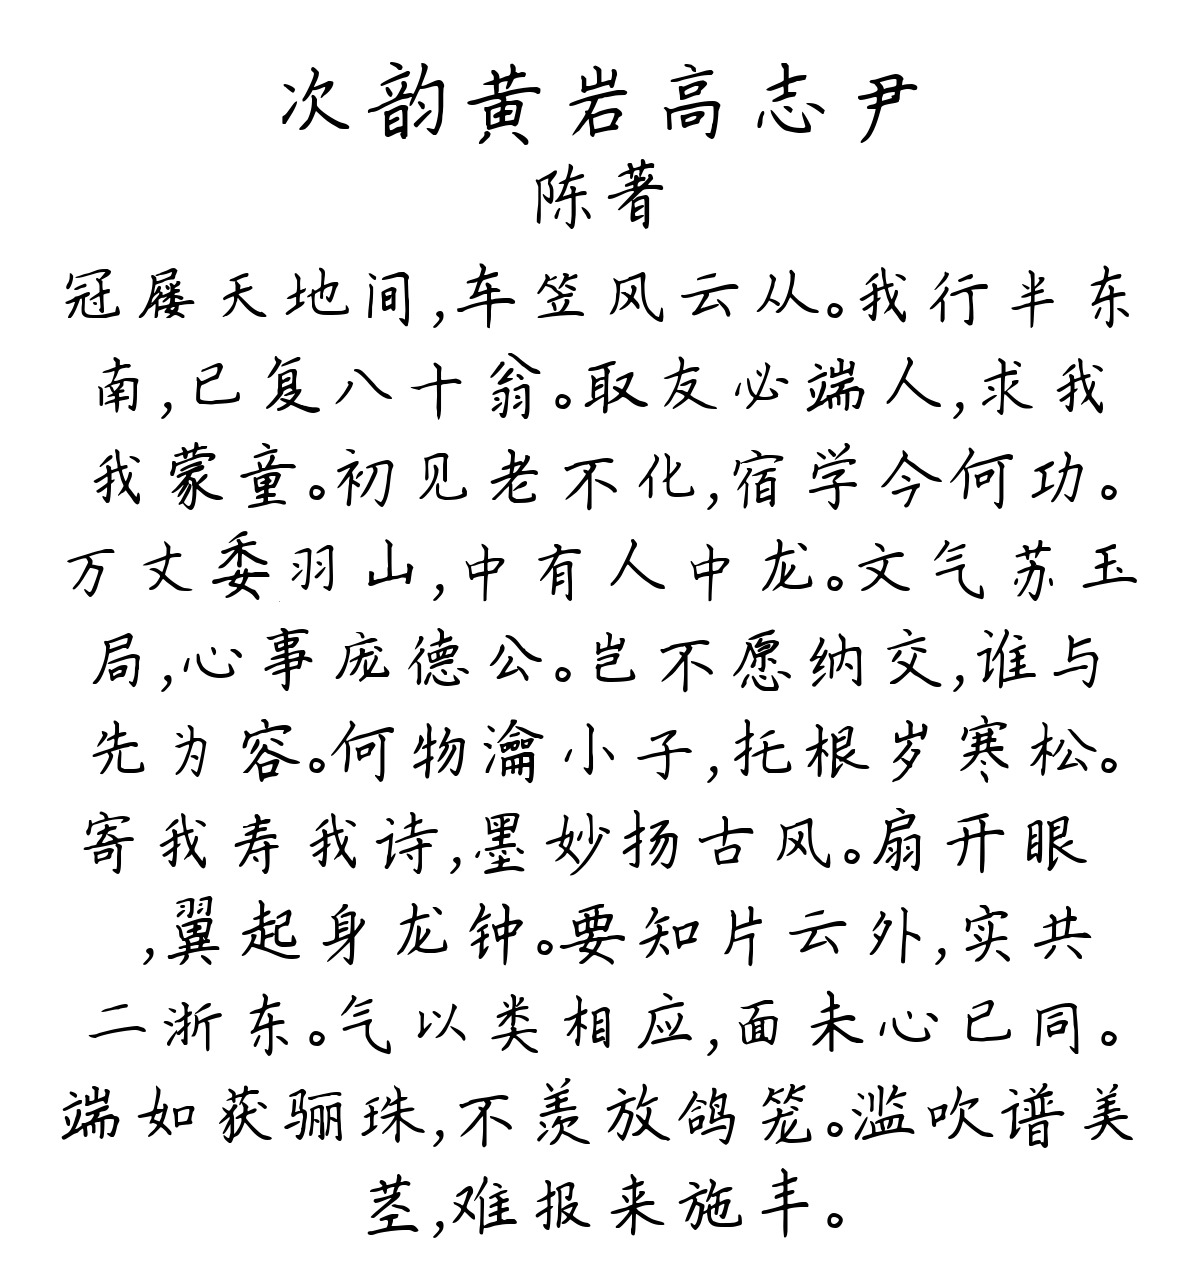 次韵黄岩高志尹
陈著
冠屦天地间,车笠风云从。我行半东
南,已复八十翁。取友必端人,求我
我蒙童。初见老不化,宿学今何功。
万丈委羽山,中有人中龙。文气苏玉
局,心事庞德公。岂不愿纳交,谁与
先为容。何物瀹小子,托根岁寒松。
寄我寿我诗,墨妙扬古风。扇开眼
,翼起身龙钟。要知片云外,实共
二浙东。气以类相应,面未心已同。
端如获骊珠,不羡放鸽笼。滥吹谱美
茎,难报来施丰。